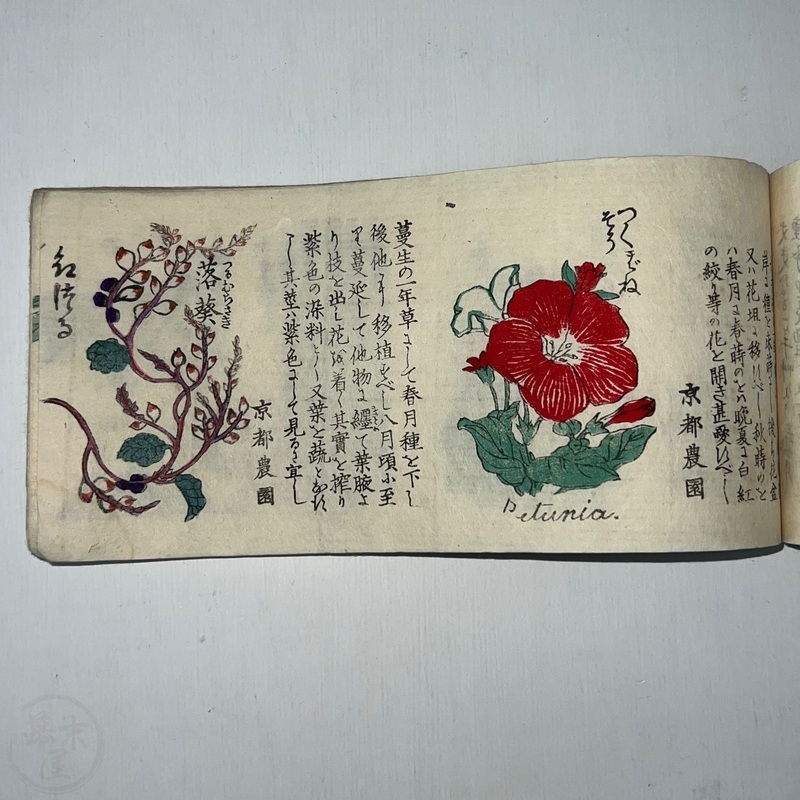 又ハ花壇に移すべし秋蒔のを
ハ春月に春蒔のをハ晩夏に白紅
の絞り等の花を開き甚愛すべし
京都農園
つくばね
そう
Petunia.
蔓生の一年草にして春月種を下し
後他に移植すべし八月頃に至
り蔓延して他物に纒て葉腋よ
り枝を出し花を着く其實を搾り
紫色の染料とし又葉を蔬となす
べし其莖ハ紫色にして見るに宜し
京都農園
つるむらさき
落葵